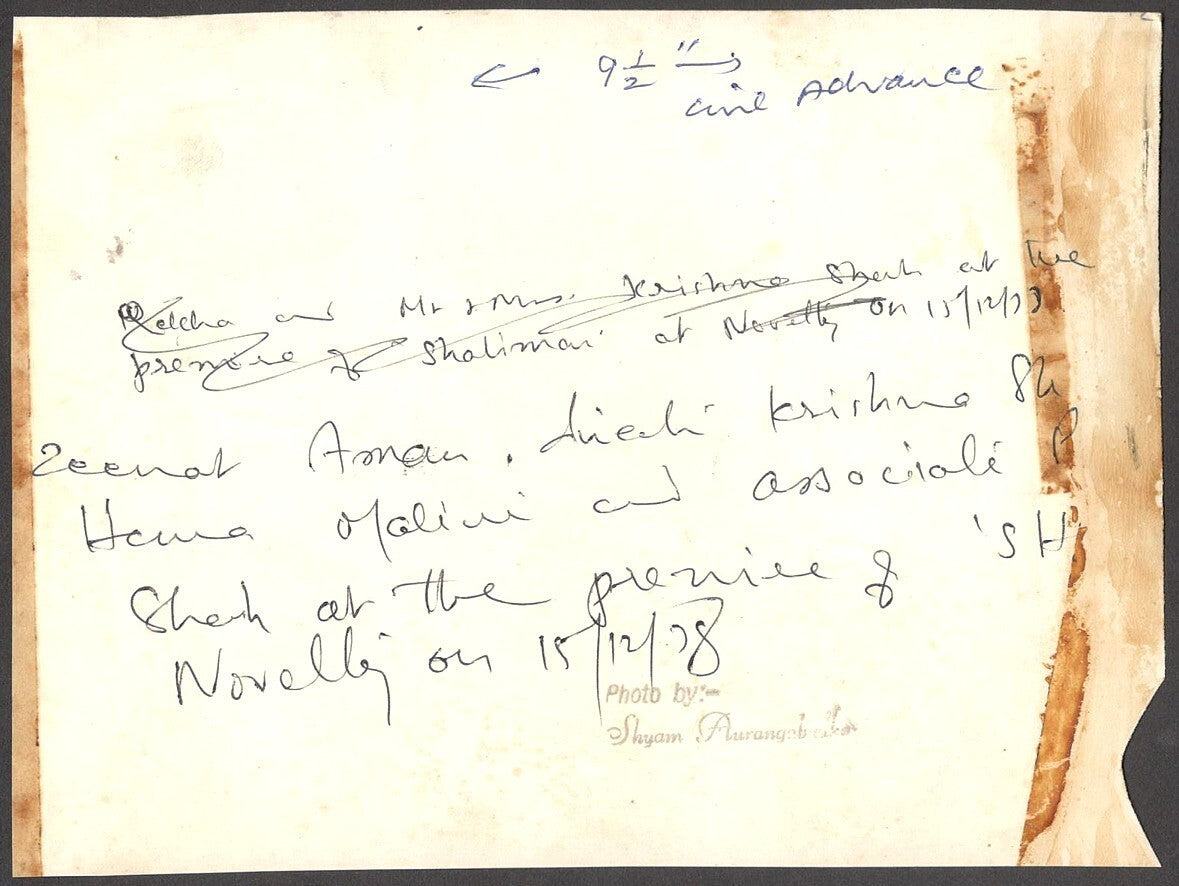 ← 9 1/2 " →
Cine Advance
Rekha and Mr & Mrs. Krishna Shah at the
premiere of Shalimar at Novelty on 15/12/78
Zeenat Aman, director Krishna Sh
Hema Malini and associate P
Shah at the premiere of 'SH
Novelty on 15/12/78
Photo by:-
Shyam Aurangabadkar